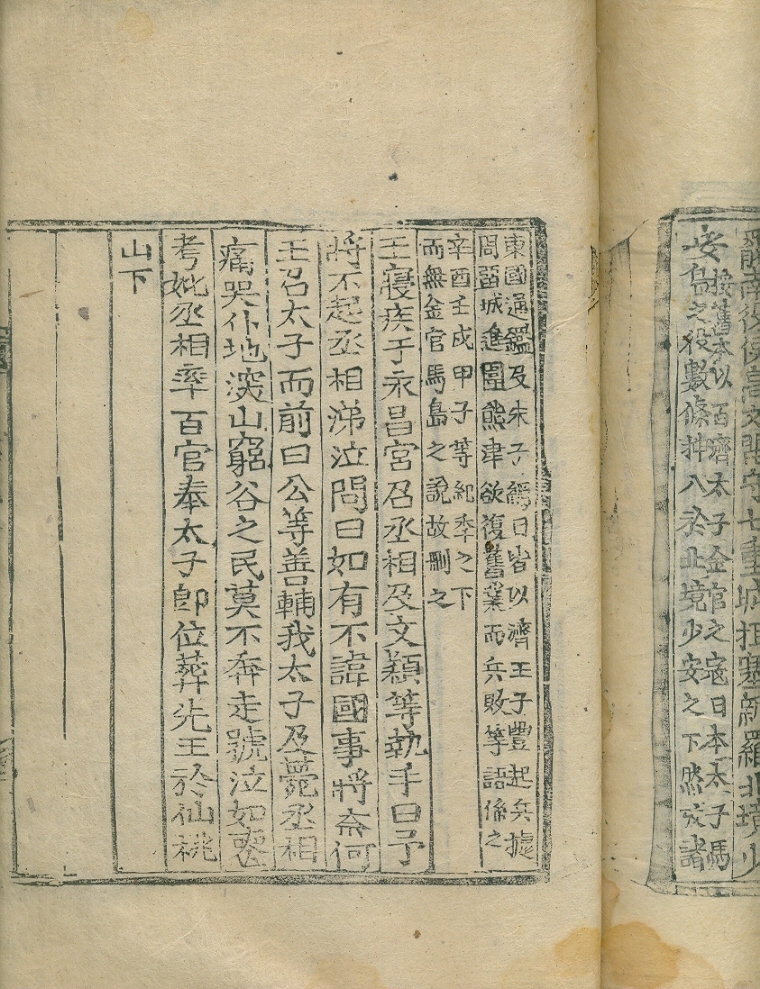 守七重城拒塞新羅北境以
安
按舊本以百濟太子金官之寇日本太子馬
島之役數條挿入於北境少安之下然攷諸
東國通鑑及朱子綱目皆以濟王子豐起兵據
周留城進圍熊津欲復舊業而兵敗等語係之
辛酉壬戌甲子等紀年之下
而無金官馬島之說故刪之
王寢疾于永昌宮召丞相及文穎等執手曰予
將不起丞相涕泣問曰如有不諱國事將奈何
王召太子而前曰公等善輔我太子及薨丞相
痛哭仆地深山窮谷之民莫不奔走號泣如喪
考妣丞相率百官奉太子卽位葬先王於仙桃
山下